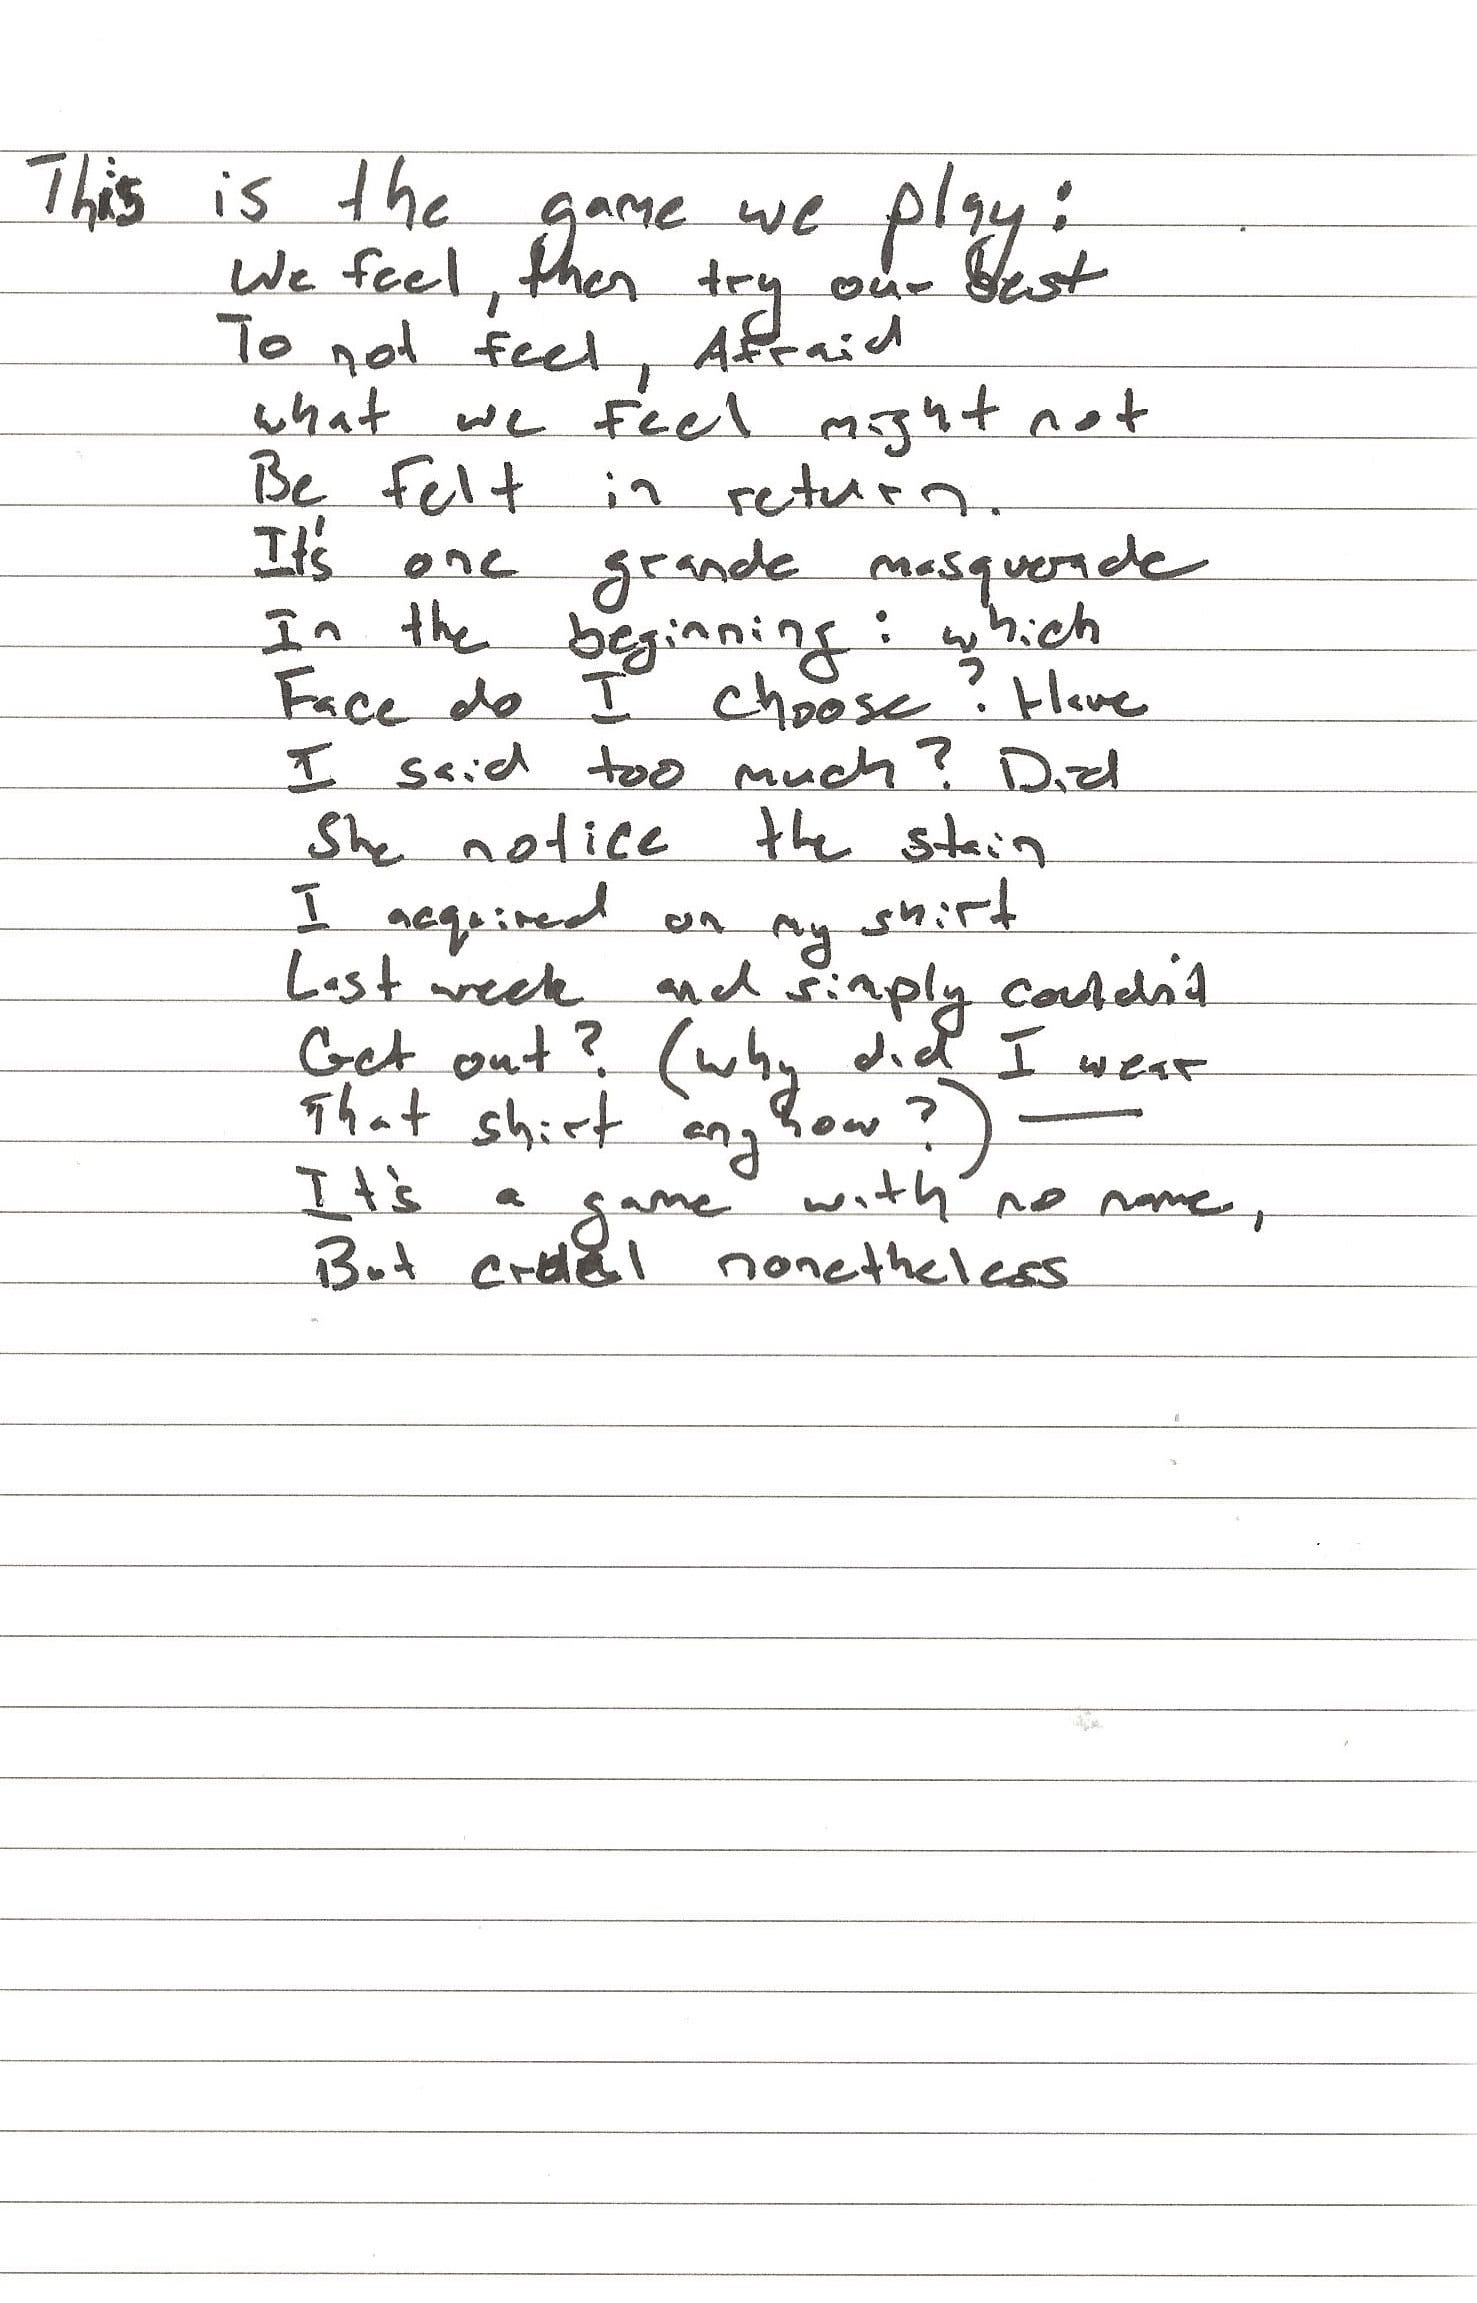 This is the game we play:
We feel, then try our best
To not feel, Afraid
what we feel might not
Be felt in return.
It's one grande masquerade
In the beginning: which
Face do I choose? Have
I said too much? Did
She notice the stain
I acquired on my shirt
Last week and simply couldn't
Get out? (why did I wear
That shirt anyhow?) —
It's a game with no name,
But cruel nonetheless